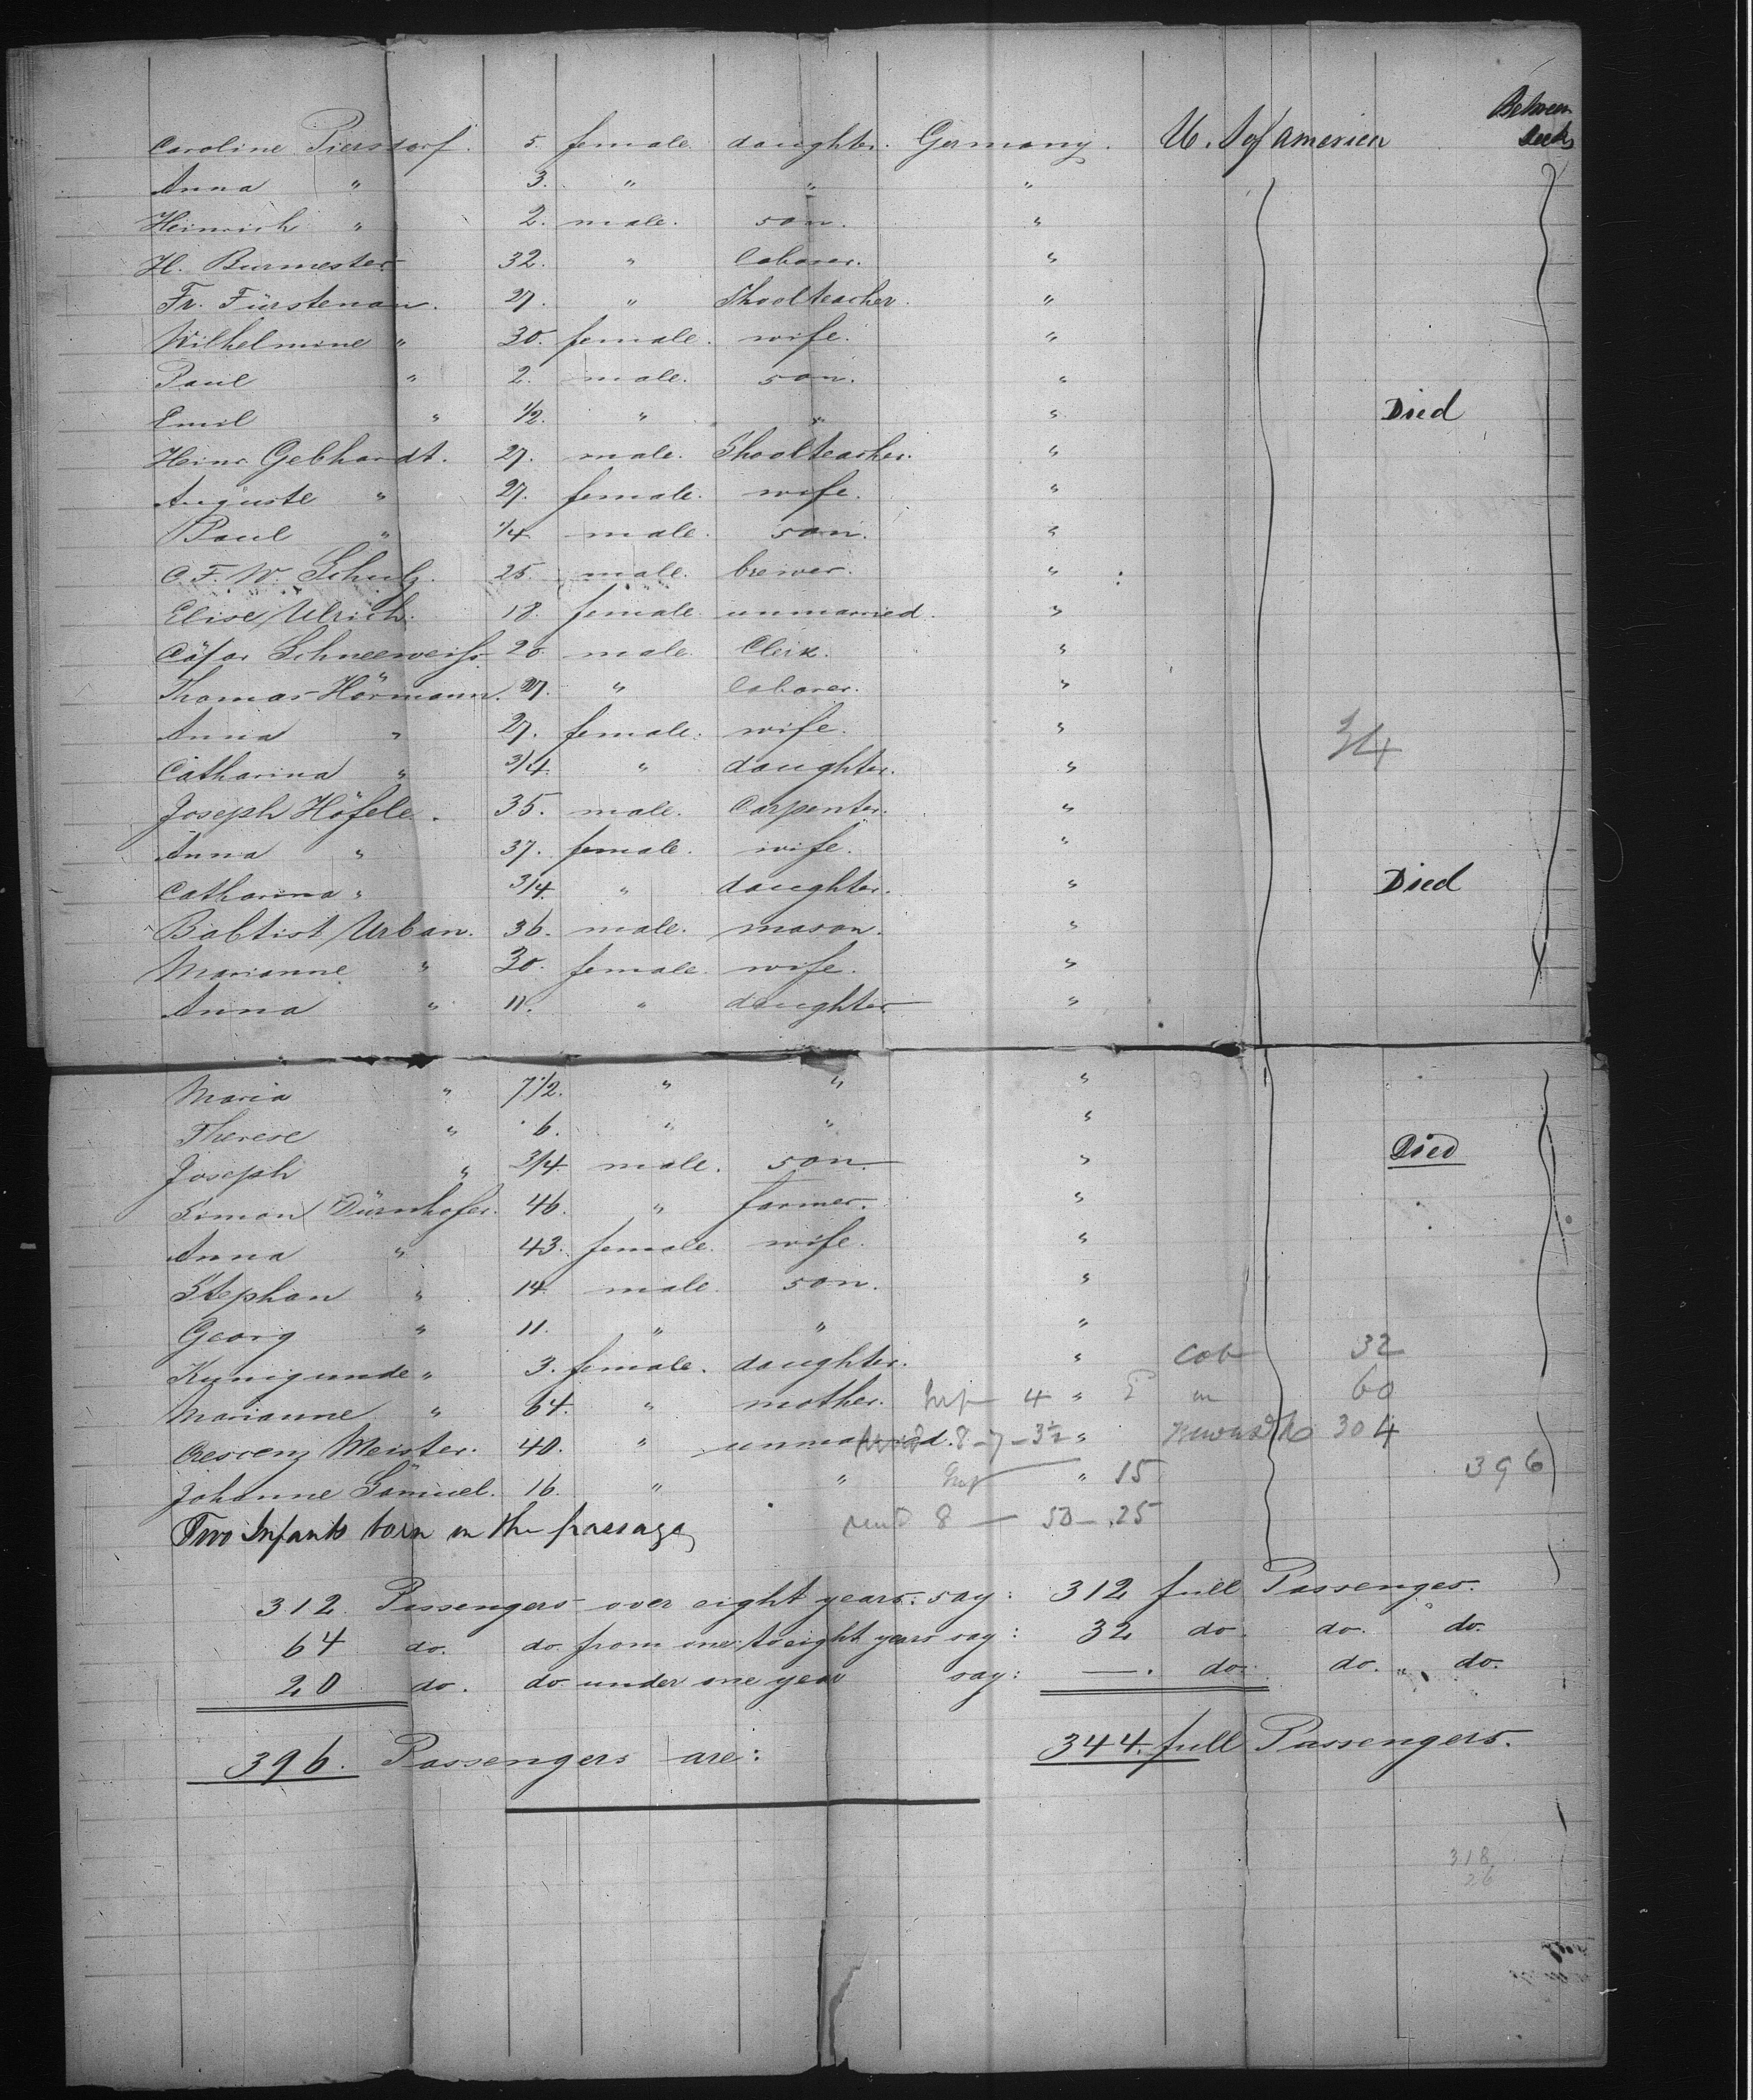 Between
Caroline Piersdorf. 5. female. daughter. Germany. U. S of America Decks
Anna " 3. " " "
Heinrich " 2. male. son. "
H. Burmester 32. " laborer. "
Fr. Fürstenau. 27. " Shoolteacher. "
Wilhelmine " 30. female. wife. "
Paul " 2. male. son. "
Emil " 1/2. " " " Died
Heinr. Gebhardt. 27. male. Shoolteacher. "
Auguste " 27. female. wife. "
Paul " 1/4. male. son. "
C. F. W. Schulz. 25. male. brewer. "
Elise Ulrich. 18. female. unmarried. "
Cäsar Schneeweiss. 20. male. Clerk. "
Thomas Hörmann. 27. " laborer. "
Anna " 27. female. wife. " 34
Catharina " 3/4. " daughter. "
Joseph Höfele. 35. male. Carpenter. "
Anna " 37. female. wife. "
Catharina " 3/4. " daughter. " Died
Babtist Urban. 36. male. mason. "
Marianne " 30. female. wife. "
Anna " 11. " daughter "
Maria " 7 1/2. " " "
Therese " 6. " " "
Joseph " 3/4. male. son. " Died
Simon Dürnhofer. 46. " farmer. "
Anna " 43. female. wife. "
Stephan " 14. male. son. "
Georg " 11. " " "
Kunigunde " 3. female. daughter. " Cab 32
Marianne " 64. " mother. 4 " 60
Crescenz Meister. 40. " unmarried. 8-7-3½ " 304
Johanne Samuel. 16. " " " 15 396
Two Infants born on the passage 8 — 50 — 25
312 Passengers over eight years. say: 312 full Passenges.
64 do. do. from one to eight years say: 32 do. do. do.
20 do. do under one year say: —. do. do. " do.
396. Passengers are: 344. full Passengers.
318
26